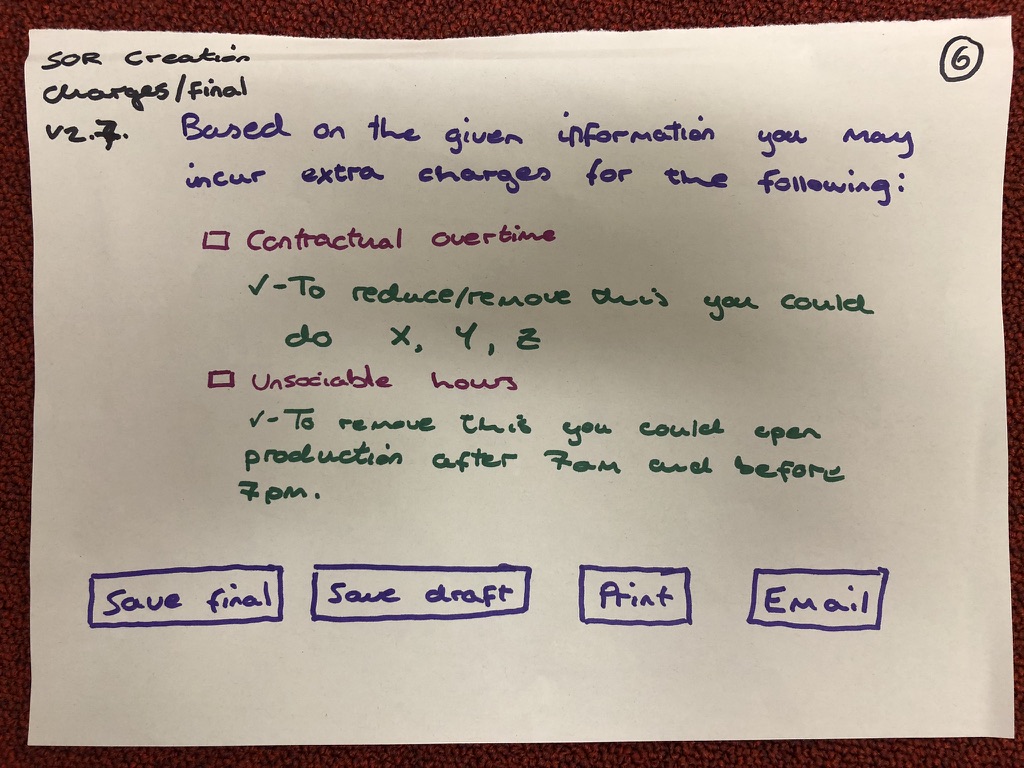 SOR Creation
6
Charges/final
v2.7.
Based on the given information you may
incur extra charges for the following:
Contractual overtime
✓-To reduce/remove this you could
do X, Y, Z
Unsociable hours
✓-To remove this you could open
production after 7am and before
7pm.
Save final
Save draft
Print
Email